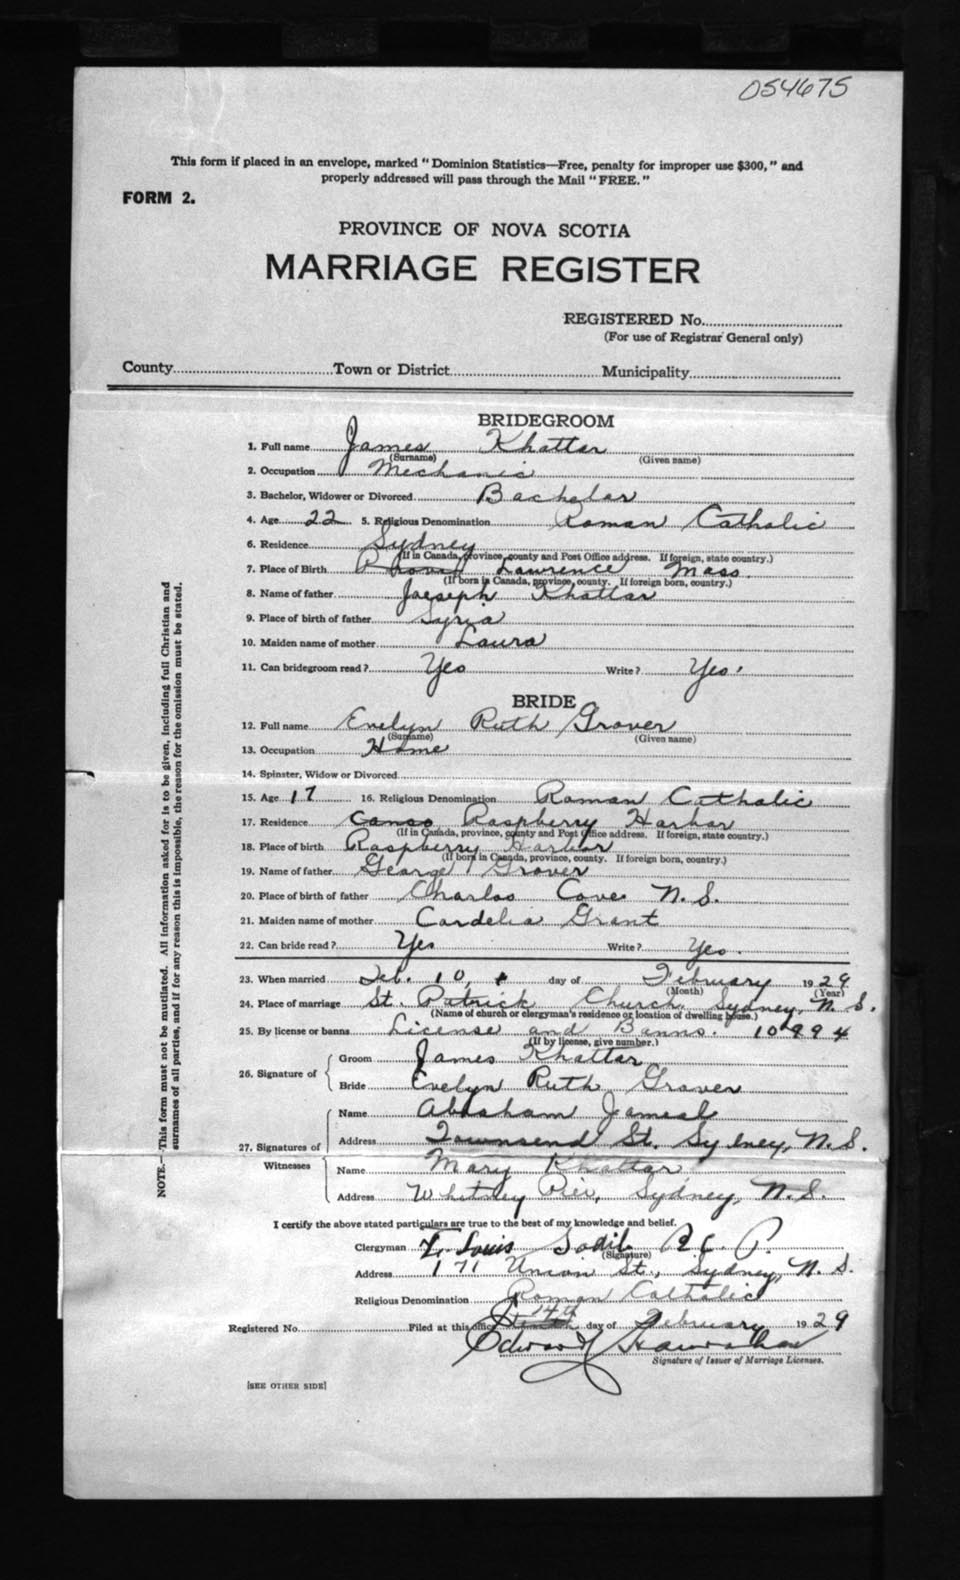 054675
This form if placed in an envelope, marked "Dominion Statistics—Free, penalty for improper use $300," and
properly addressed will pass through the Mail "FREE."
FORM 2.
PROVINCE OF NOVA SCOTIA
MARRIAGE REGISTER
REGISTERED No.
(For use of Registrar General only)
County Town or District Municipality
BRIDEGROOM
1. Full name James Khattar
(Surname) (Given name)
2. Occupation Mechanic
3. Bachelor, Widower or Divorced Bachelor
4. Age 22 5. Religious Denomination Roman Catholic
6. Residence Sydney
(If in Canada, province, county and Post Office address. If foreign, state country.)
7. Place of Birth Lawrence Mass.
(If born in Canada, province, county. If foreign born, country.)
8. Name of father Joeseph Khattar
9. Place of birth of father Syria
10. Maiden name of mother Laura
11. Can bridegroom read? Yes Write? Yes.
BRIDE
12. Full name Evelyn Ruth Grover
(Surname) (Given name)
13. Occupation Home
14. Spinster, Widow or Divorced
15. Age 17 16. Religious Denomination Roman Catholic
17. Residence Canso Raspberry Harbor
(If in Canada, province, county and Post Office address. If foreign, state country.)
18. Place of birth Raspberry Harbor
(If born in Canada, province, county. If foreign born, country.)
19. Name of father George Grover
20. Place of birth of father Charlos Cove N.S.
21. Maiden name of mother Cordelia Grant
22. Can bride read? Yes Write? Yes.
23. When married Feb. 10, day of February 1929
(Month) (Year)
24. Place of marriage St. Patrick Church, Sydney, N.S.
(Name of church or clergyman's residence or location of dwelling house.)
25. By license or banns License and Banns. 10994
(If by license, give number.)
26. Signature of
Groom James Khattar
Bride Evelyn Ruth Grover
27. Signatures of Witnesses
Name Abraham
Address Townsend St. Sydney, N.S.
Name Mary Khattar
Address Whitney Pier, Sydney, N.S.
I certify the above stated particulars are true to the best of my knowledge and belief.
Clergyman Louis P.P.
(Signature)
Address 171 Union St., Sydney, N.S.
Religious Denomination Roman Catholic
Registered No. Filed at this office 14th day of February 1929
Edward
Signature of Issuer of Marriage Licenses.
[SEE OTHER SIDE]
NOTE.—This form must not be mutilated. All information asked for is to be given, including full Christian and
surnames of all parties, and if for any reason this is impossible, the reason for the omission must be stated.